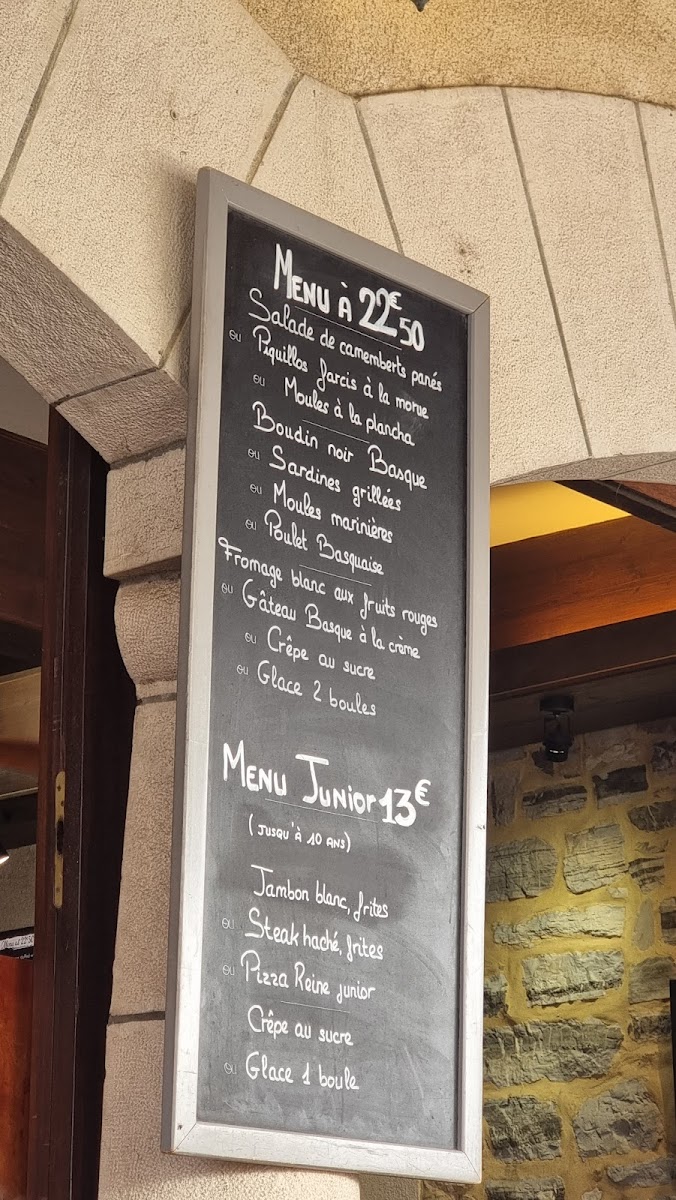 MENU À 22€50
Salade de camemberts panés
ou Piquillos farcis à la morue
ou Moules à la plancha
Boudin noir Basque
ou Sardines grillées
ou Moules marinières
ou Poulet Basquaise
Fromage blanc aux fruits rouges
ou Gâteau Basque à la crème
ou Crêpe au sucre
ou Glace 2 boules
MENU JUNIOR 13€
(JUSQU'À 10 ANS)
Jambon blanc, frites
ou Steak haché, frites
ou Pizza Reine junior
Crêpe au sucre
ou Glace 1 boule